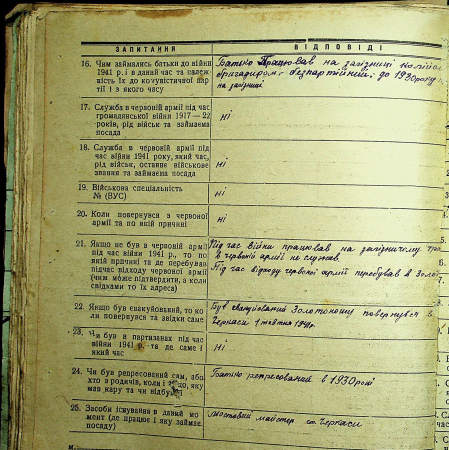 ЗАПИТАННЯ
ВІДПОВІДІ
16. Чим займались батьки до війни
1941 р. і в даний час та належ-
ність їх до комуністичної пар-
тії і з якого часу
Батько Працював на залізниці
бригадиром, безпартійний, до 1930 року
на залізниці
17. Служба в червоній армії під час
громадянської війни 1917—22
років, рід військ та займаєма
посада
ні
18. Служба в червоній армії під
час війни 1941 року, який час,
рід військ, останнє військове
звання та займаєма посада
ні
19. Військова спеціальність
№ (ВУС)
ні
20. Коли повернувся з червоної
армії та по якій причині
ні
21. Якщо не був в червоній армії
під час війни 1941 р., то по
якій причині та де перебував
підчас відходу червоної армії
(чим може підтвердити, а коли
свідками то їх адреса)
Під час війни працював на залізничому
в червоній армії не служив.
Під час відходу червоної армії перебував в
22. Якщо був евакуйований, то ко-
ли повернувся та звідки саме
Був евакуйований Золотоношу повернувся в
Черкаси 1 жовтня 1941р.
23. Чи був в партизанах під час
війни 1941 р. та де саме і
який час
ні
24. Чи був репресований сам, або
хто з родичів, коли і за що, яку
мав кару та чи відбув
Батько репресований в 1930 році
25. Засоби існування в даний мо-
мент (де працює і яку займає
посаду)
Мостовий майстер ст. Черкаси